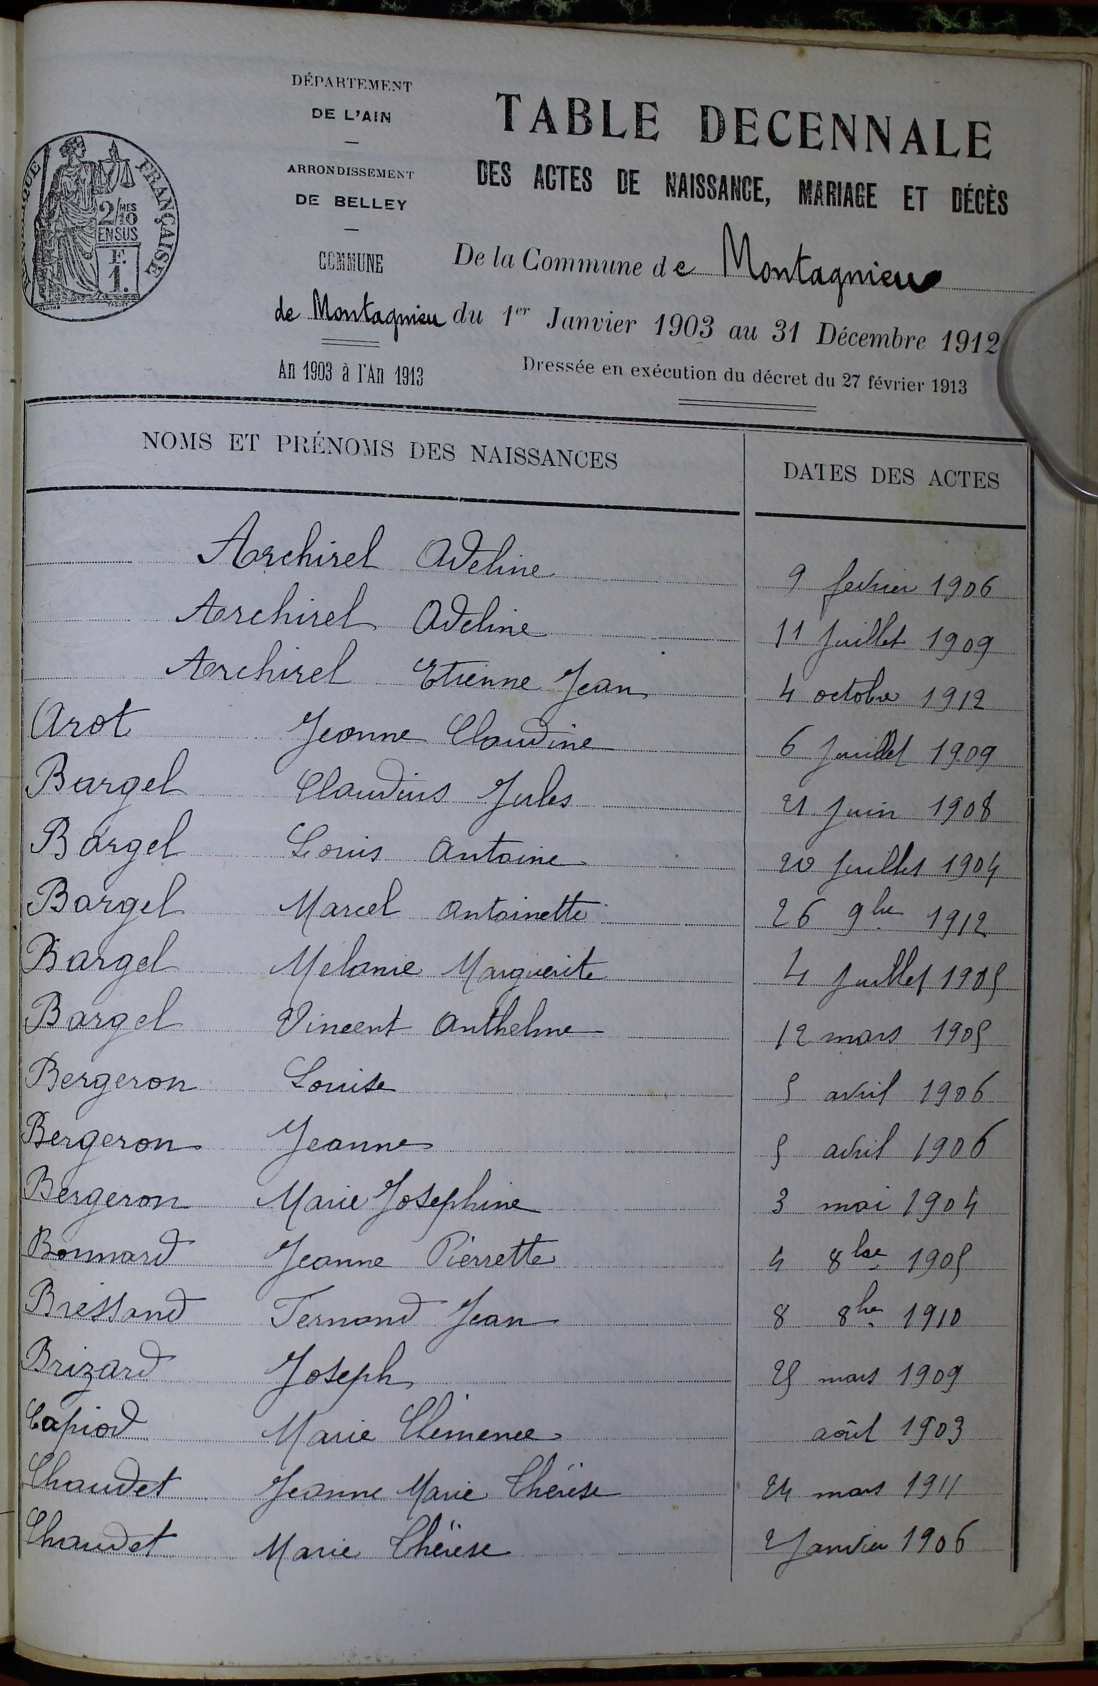 DÉPARTEMENT
DE L'AIN
ARRONDISSEMENT
DE BELLEY
COMMUNE
de Montagnieu
An 1903 à l'An 1913
FRANÇAISE
2/10 MES
EN SUS
F.
1.
TABLE DECENNALE
DES ACTES DE NAISSANCE, MARIAGE ET DÉCÈS
De la Commune de Montagnieu
du 1er Janvier 1903 au 31 Décembre 1912
Dressée en exécution du décret du 27 février 1913
NOMS ET PRÉNOMS DES NAISSANCES DATES DES ACTES
Archirel Adeline 9 fevrier 1906
Archirel Adeline 11 Juillet 1909
Archirel Etienne Jean 4 octobre 1912
Arot Jeanne Claudine 6 Juillet 1909
Bargel Claudius Jules 21 Juin 1908
Bargel Louis Antoine 20 Juillet 1904
Bargel Marcel Antoinette 26 9bre 1912
Bargel Mélanie Marguerite 4 Juillet 1905
Bargel Vincent Anthelme 12 mars 1905
Bergeron Louise 5 avril 1906
Bergeron Jeanne 5 avril 1906
Bergeron Marie Josephine 3 mai 1904
Bonnard Jeanne Pierrette 4 8bre 1905
Bressand Fernand Jean 8 8bre 1910
Brizard Joseph 25 mars 1909
Capiod Marie Clémence août 1903
Chaudet Jeanne Marie Thérèse 24 mars 1911
Chaudet Marie Thérèse 2 Janvier 1906